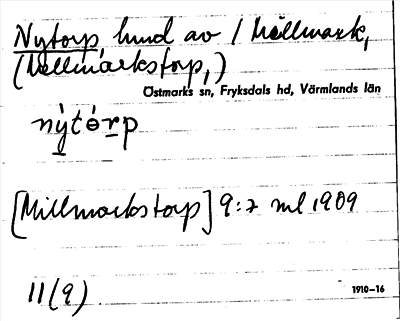 Nytorp hmd av 1 Mellmark,
(Mellmarkstorp,)
Östmarks sn, Fryksdals hd, Värmlands län
nỳtórp
[Millmarkstorp] 9:7 ml 1909
11(9)
1910–16